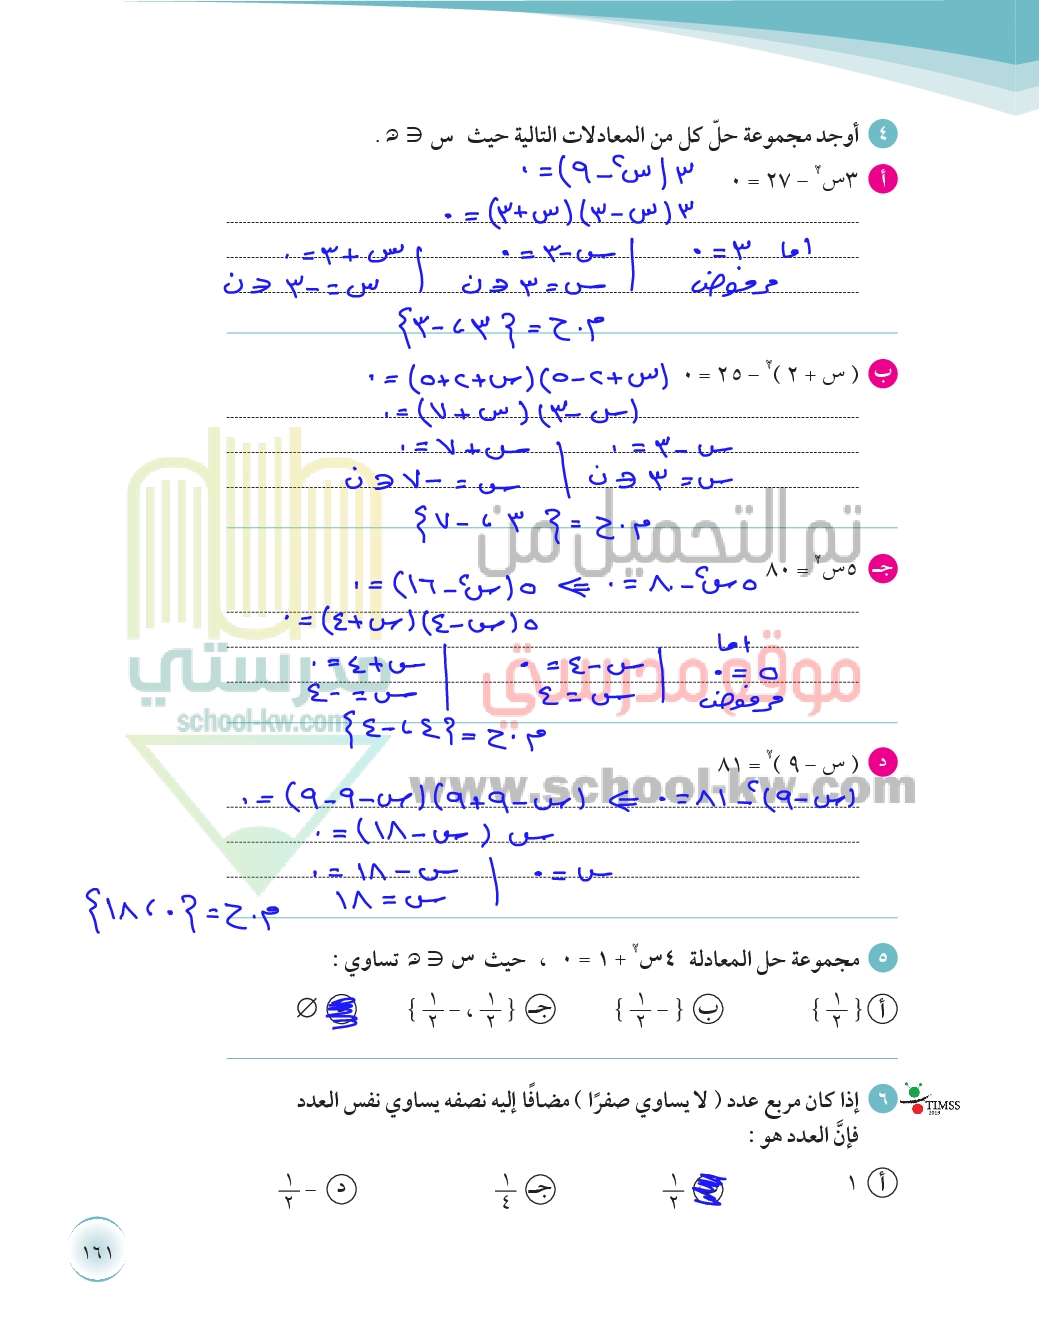 ٤ أوجد مجموعة حلّ كل من المعادلات التالية حيث س ∈ ن .
أ ٣س² − ٢٧ = ٠
٣ (س² − ٩) = ٠
٣ (س − ٣) (س + ٣) = ٠
اما ٣ = ٠ | س − ٣ = ٠ | س + ٣ = ٠
مرفوض | س = ٣ ∈ ن | س = −٣ ∈ ن
م.ح = {٣ ، −٣}
ب ( س + ٢ )² − ٢٥ = ٠
(س + ٢ − ٥) (س + ٢ + ٥) = ٠
(س − ٣) (س + ٧) = ٠
س − ٣ = ٠ | س + ٧ = ٠
س = ٣ ∈ ن | س = −٧ ∈ ن
م.ح = {٣ ، −٧}
تم التحميل من
جـ ٥س² = ٨٠
٥س² − ٨٠ = ٠ ⇒ ٥ (س² − ١٦) = ٠
٥ (س − ٤) (س + ٤) = ٠
اما ٥ = ٠ | س − ٤ = ٠ | س + ٤ = ٠
مرفوض | س = ٤ | س = −٤
موقع مدرستي
مدرستي
school-kw.com
م.ح = {٤ ، −٤}
د ( س − ٩ )² = ٨١
www.school-kw.com
(س − ٩)² − ٨١ = ٠ ⇒ (س − ٩ + ٩) (س − ٩ − ٩) = ٠
س (س − ١٨) = ٠
س = ٠ | س − ١٨ = ٠
س = ١٨
م.ح = {٠ ، ١٨}
٥ مجموعة حل المعادلة ٤س² + ١ = ٠ ، حيث س ∈ ن تساوي :
أ { ١/٢ } ب { − ١/٢ } جـ { ١/٢ ، − ١/٢ } ∅
٦ إذا كان مربع عدد ( لا يساوي صفرًا ) مضافًا إليه نصفه يساوي نفس العدد
TIMSS
2019
فإنَّ العدد هو :
أ ١ ١/٢ جـ ١/٤ د − ١/٢
١٦١